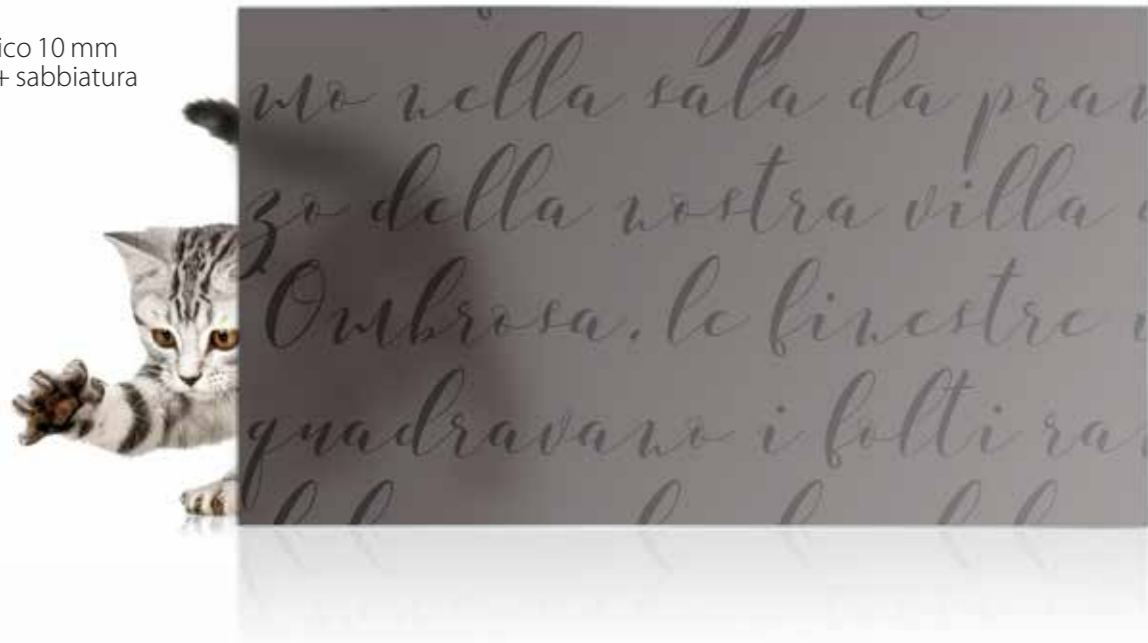 ico 10 mm
+ sabbiatura
mo nella sala da pran
zo della nostra villa
Ombrosa. le finestre
quadravano i folti ra